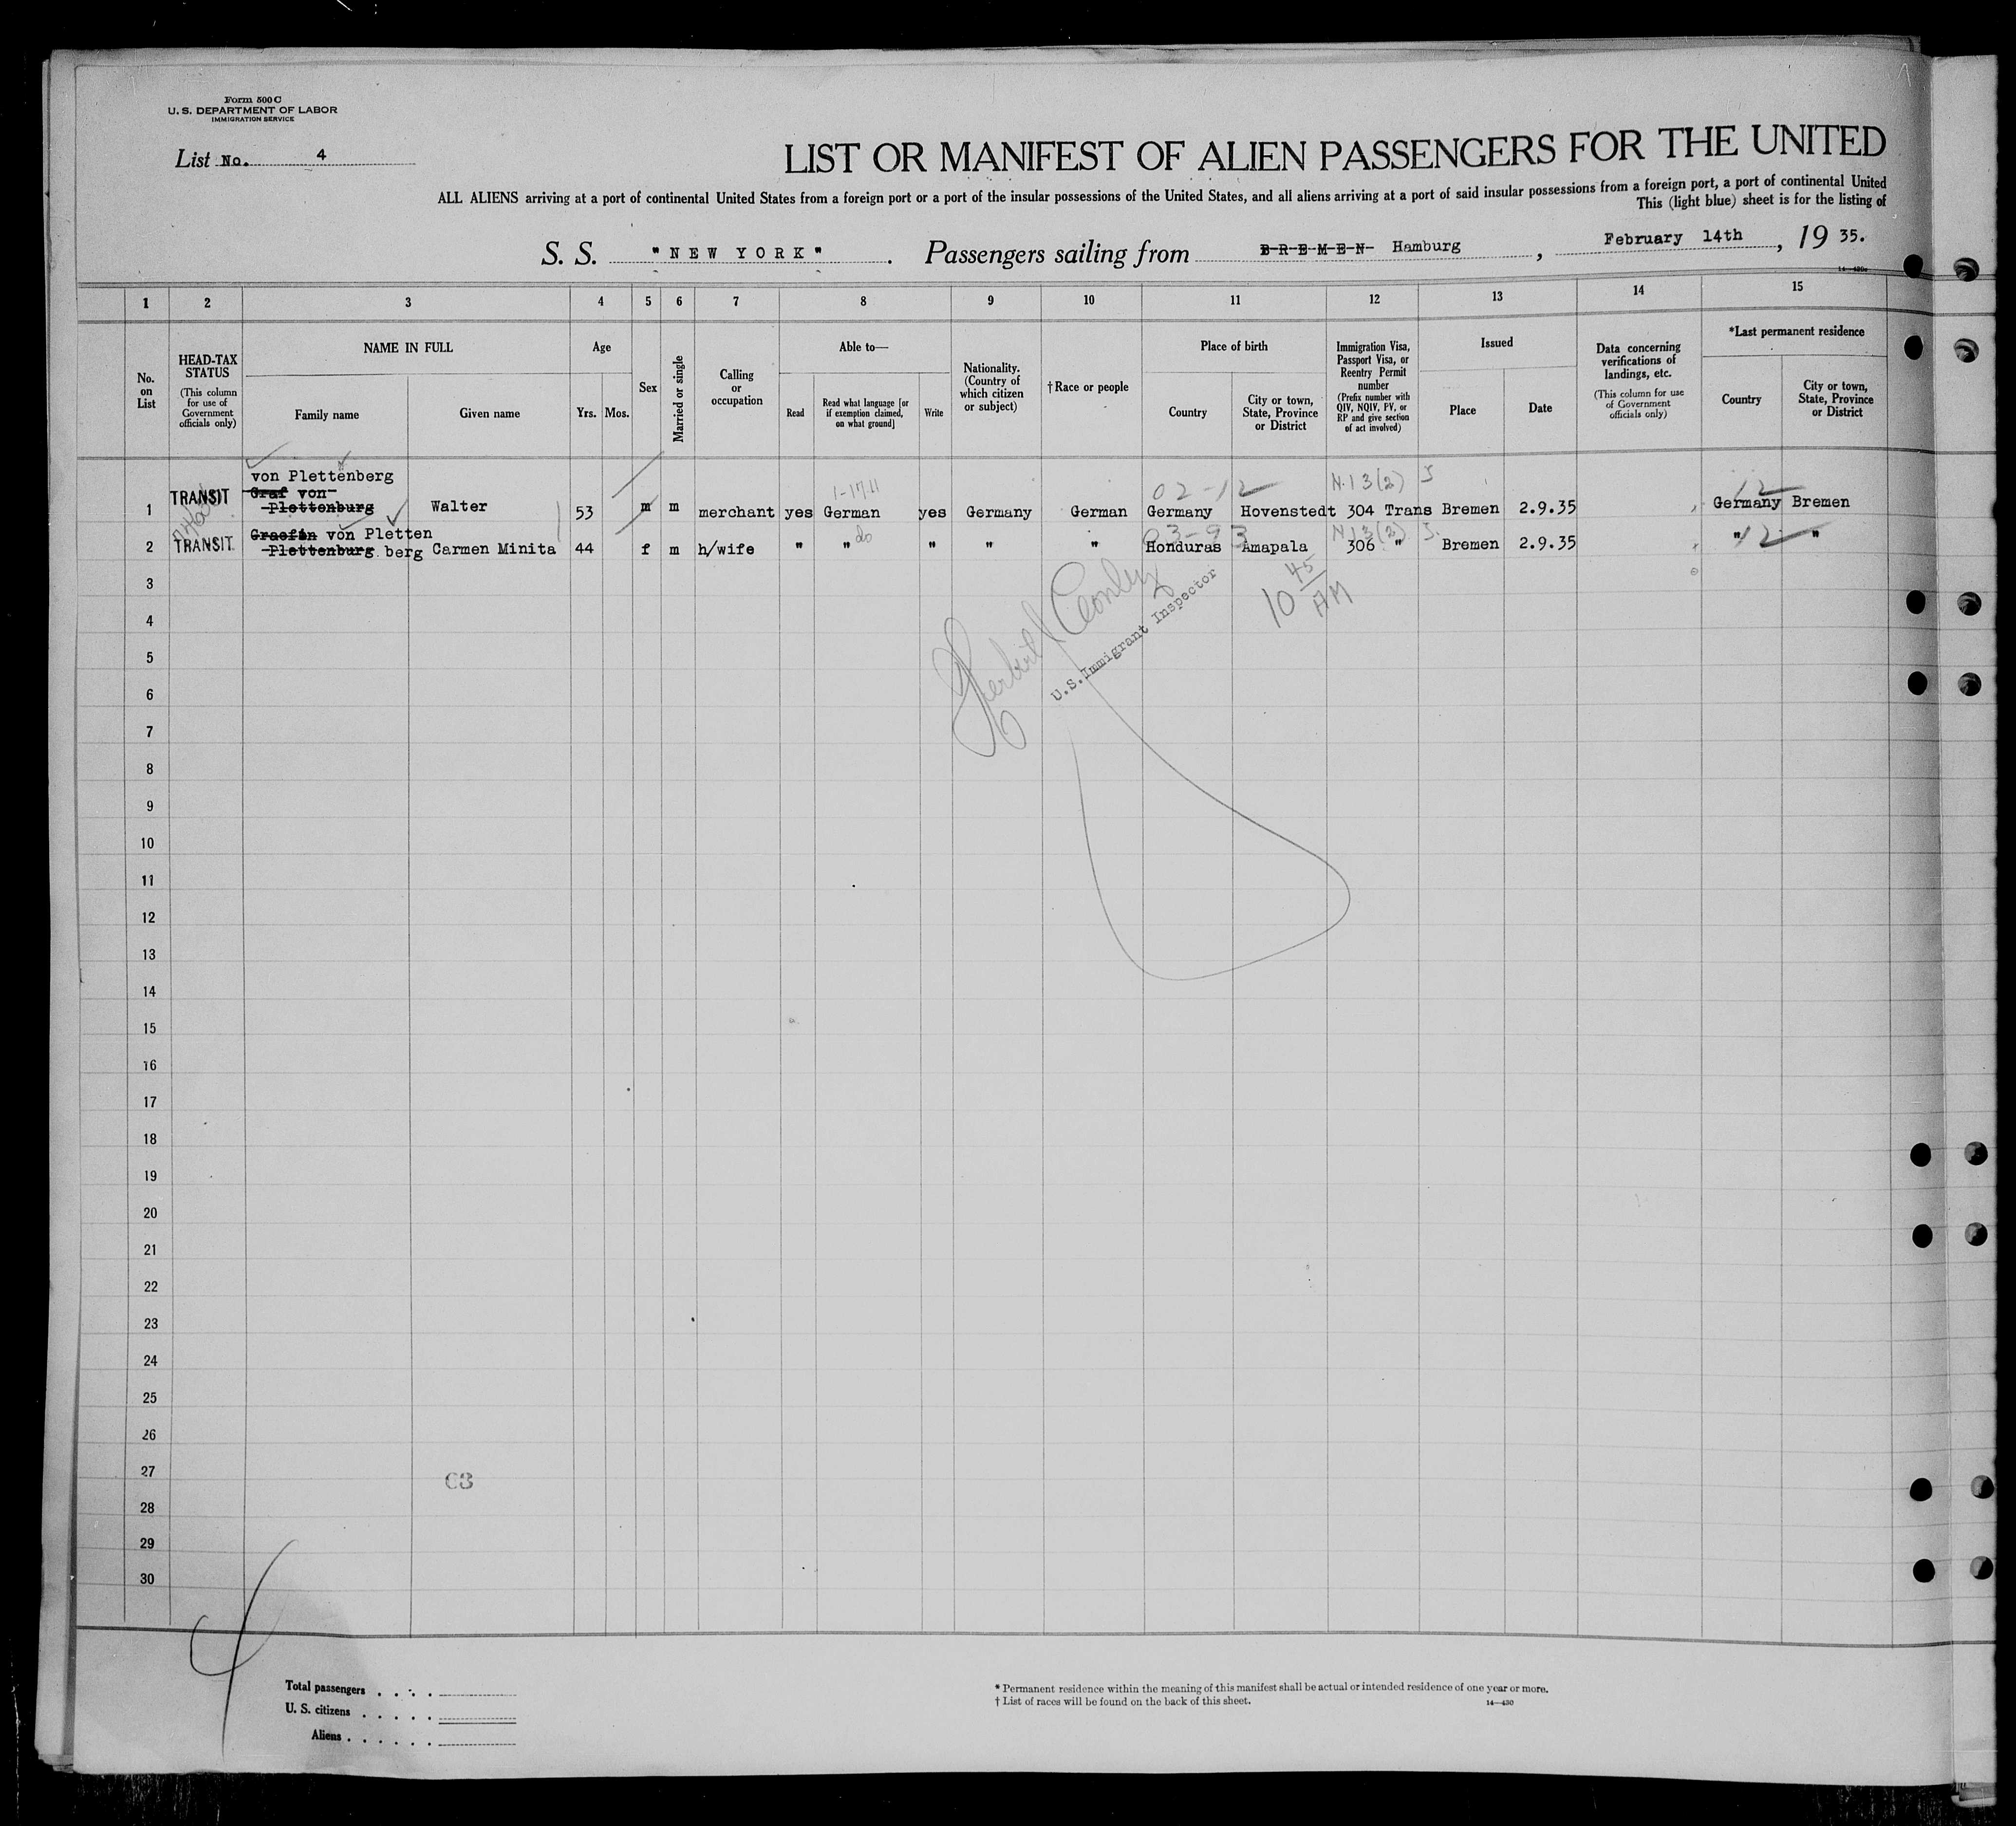 Form 500 C
U. S. DEPARTMENT OF LABOR
IMMIGRATION SERVICE
List No. 4
LIST OR MANIFEST OF ALIEN PASSENGERS FOR THE UNITED
ALL ALIENS arriving at a port of continental United States from a foreign port or a port of the insular possessions of the United States, and all aliens arriving at a port of said insular possessions from a foreign port, a port of continental United
This (light blue) sheet is for the listing of
S. S. "NEW YORK". Passengers sailing from BREMEN Hamburg, February 14th, 19 35.
1 2 3 4 5 6 7 8 9 10 11 12 13 14 15
No. on List
HEAD-TAX STATUS (This column for use of Government officials only)
NAME IN FULL
Family name
Given name
Age
Yrs. Mos.
Sex
Married or single
Calling or occupation
Able to—
Read
Read what language [or if exemption claimed, on what ground]
Write
Nationality. (Country of which citizen or subject)
†Race or people
Place of birth
Country
City or town, State, Province or District
Immigration Visa, Passport Visa, or Reentry Permit number (Prefix number with QIV, NQIV, PV, or RP and give section of act involved)
Issued
Place
Date
Data concerning verifications of landings, etc. (This column for use of Government officials only)
*Last permanent residence
Country
City or town, State, Province or District
von Plettenberg
Graf von
1-17-11 02-12 N.13(2) 5 12
1 TRANSIT Plettenburg Walter 53 m m merchant yes German yes Germany German Germany Hovenstedt 304 Trans Bremen 2.9.35 Germany Bremen
Graefin von Pletten
do 03-93 N13(2) 5. 12
2 TRANSIT. Plettenburg berg Carmen Minita 44 f m h/wife " " " " " Honduras Amapala 306 " Bremen 2.9.35 " "
3
4
5
6
7
8
9
10
11
12
13
14
15
16
17
18
19
20
21
22
23
24
25
26
27
28
29
30
U.S. Immigrant Inspector
10 45 AM
C3
4
Total passengers
U. S. citizens
Aliens
* Permanent residence within the meaning of this manifest shall be actual or intended residence of one year or more.
† List of races will be found on the back of this sheet.
14—430